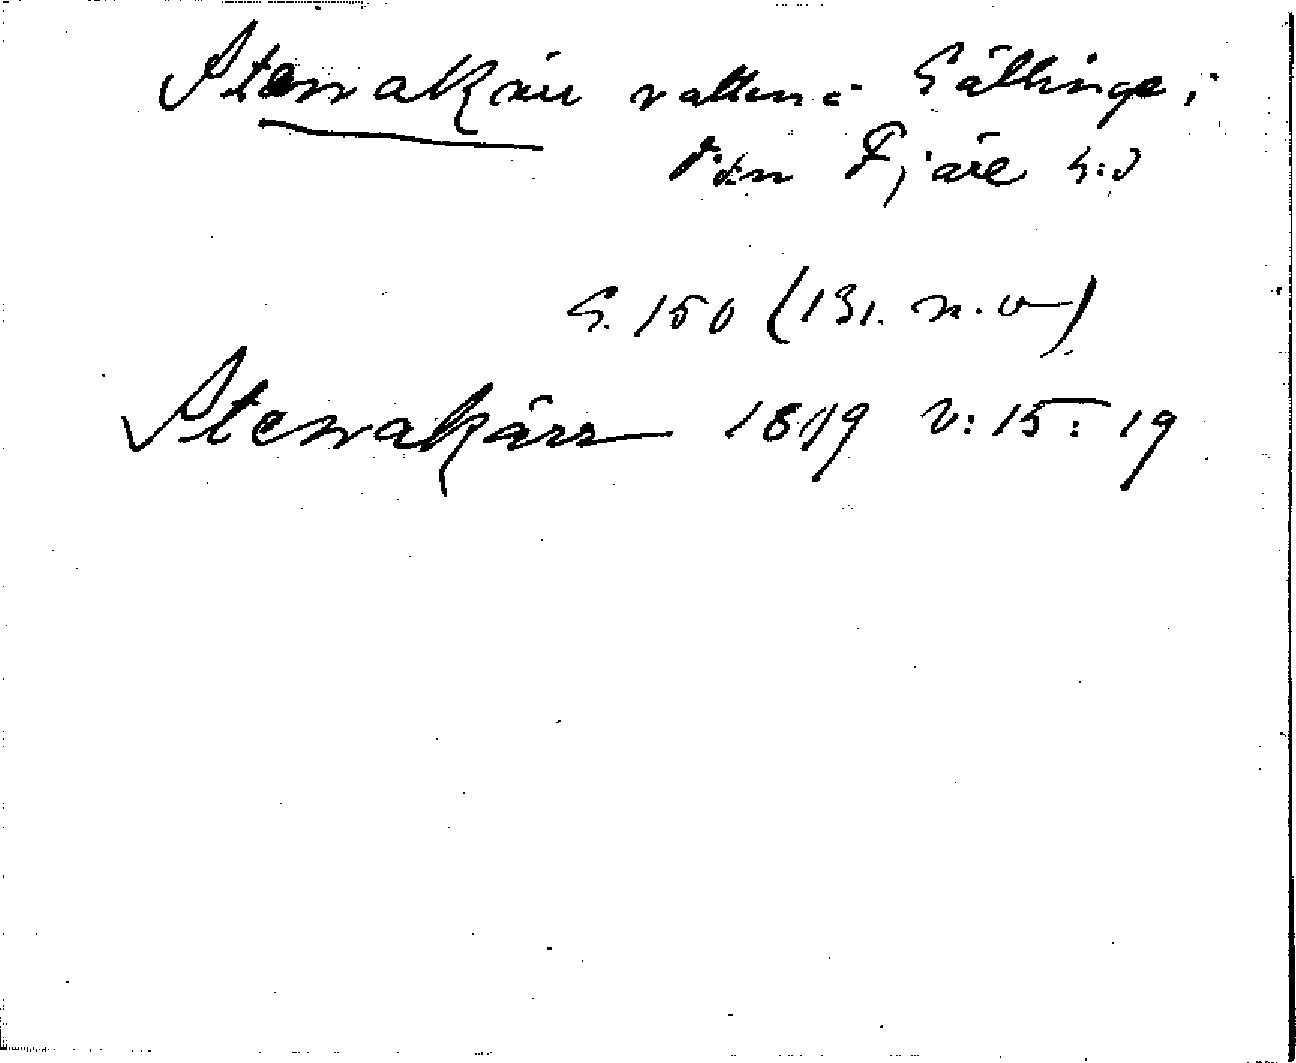 Stenakärr vatten i Gällinge i
Fjäre h:d
S. 150 (131. n. v)
Stenakärr 1819 v: 15: 19